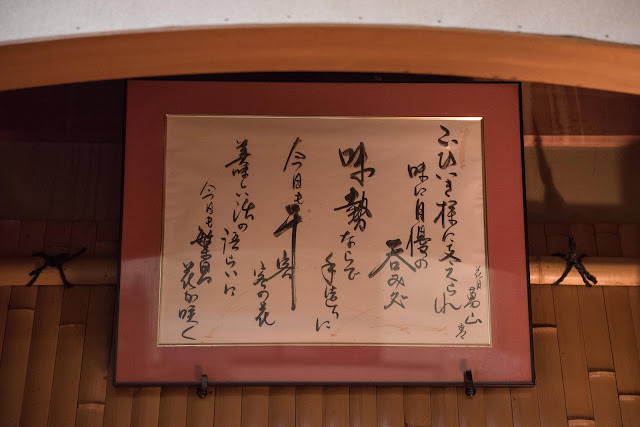 ごひいき様に支えられ
味に自慢の
呑み処
味勢ならで手造りに
今日も千客
の花
美味しい話の語らいに
今日も繁昌
花が咲く